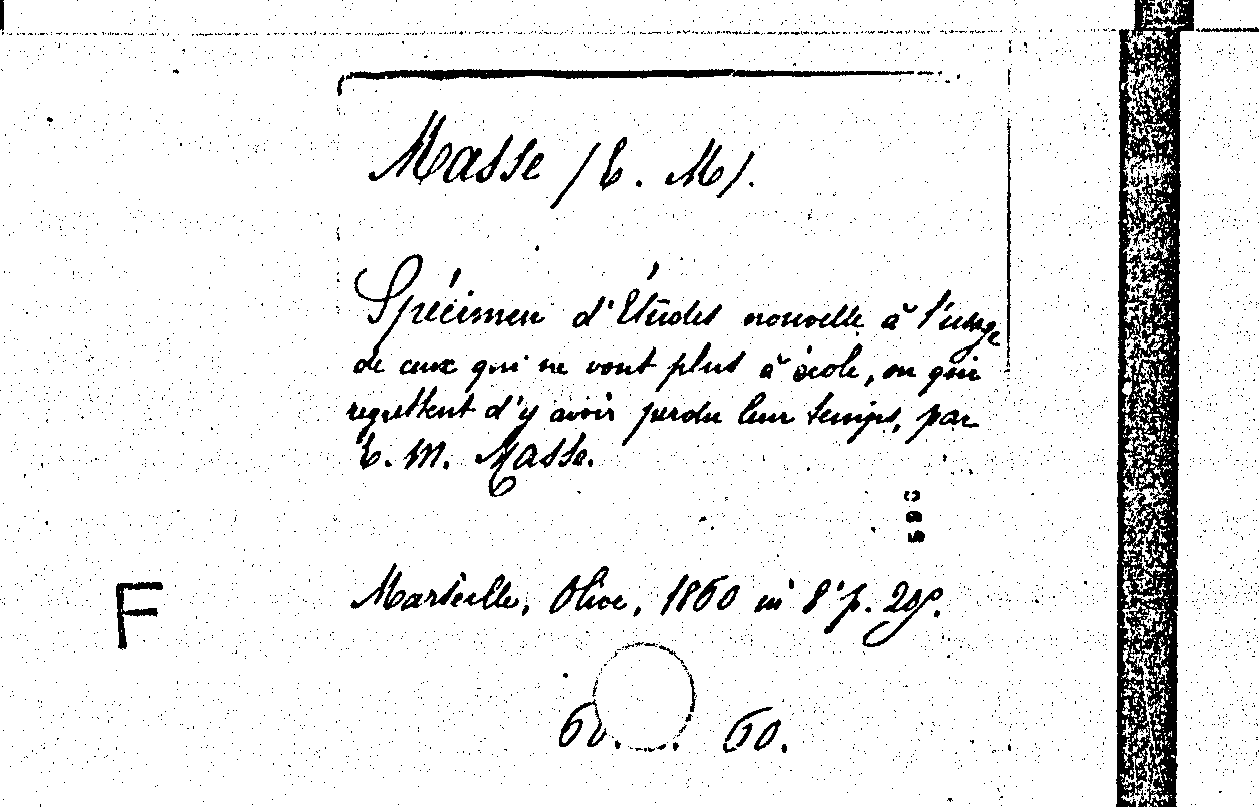 Masse /E. M/.
Spécimen d'Études nouvelle à l'usage
de ceux qui ne vont plus à école, ou qui
regrettent d'y avoir perdu leur temps, par
E. M. Masse.
F
Marseille, Olive, 1860 in 8° p.
60. 60.